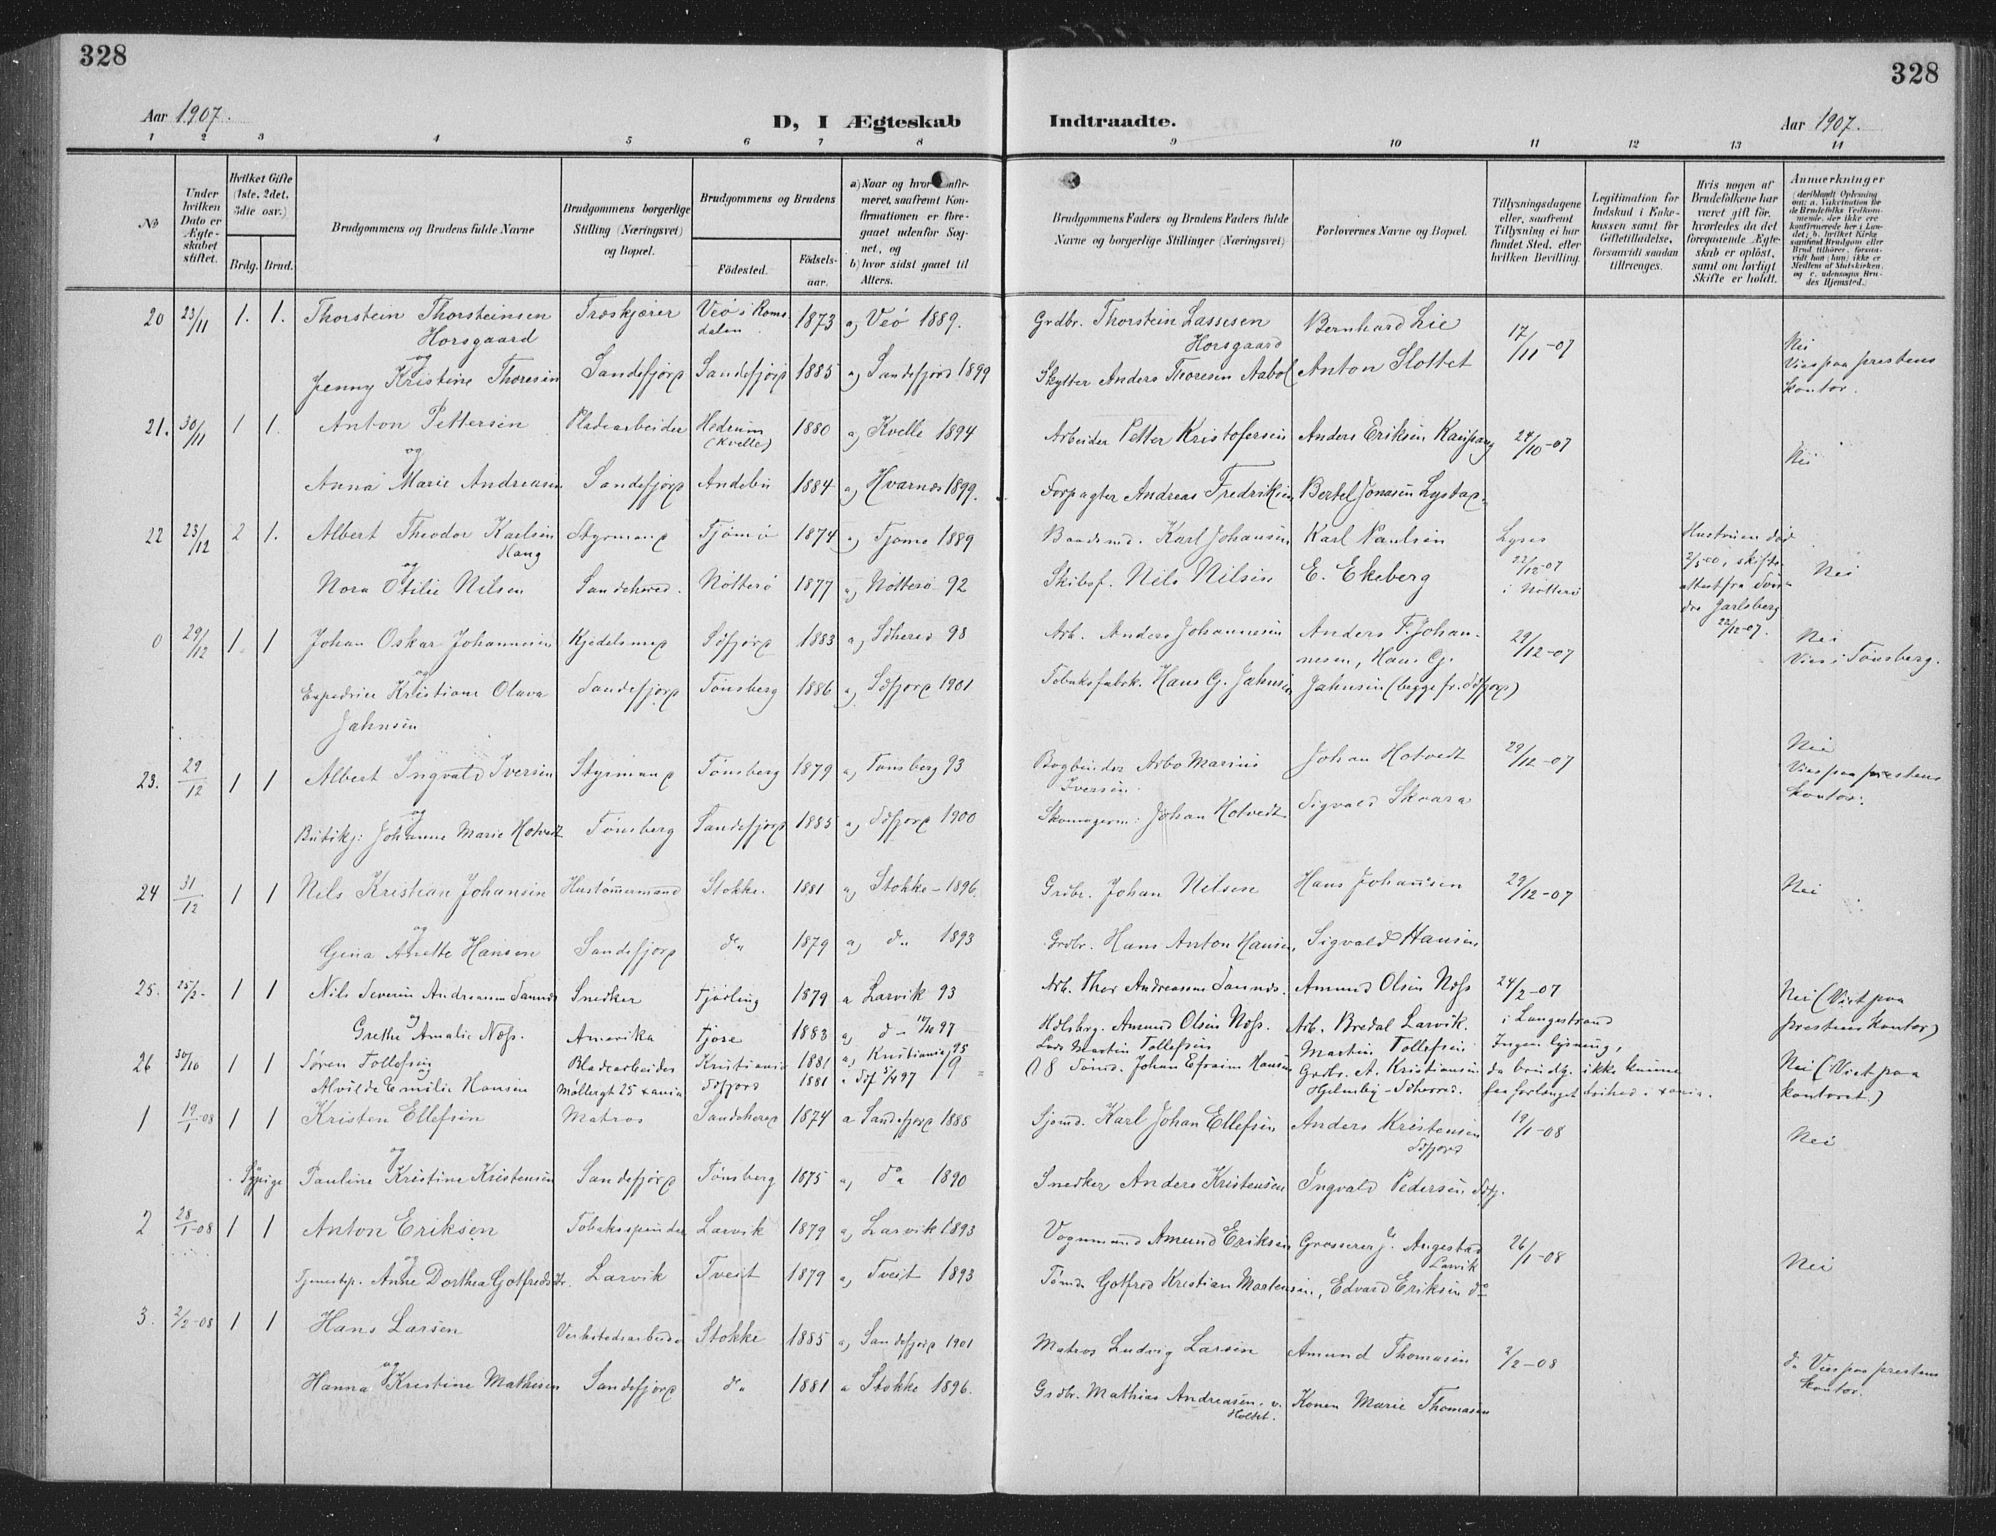 328
328
Aar 1907.
D, I Ægteskab
Indtraadte.
Aar 1907.
1 2 3 4 5 6 7 8 9 10 11 12 13 14
No
Under hvilken Dato er Ægteskabet stiftet.
Hvilket Gifte (1ste, 2det, 3die osv.)
Brdg. Brud.
Brudgommens og Brudens fulde Navne
Brudgommens borgerlige Stilling (Næringsvei) og Bopæl.
Brudgommens og Brudens
Födested.
Födsels-aar.
a) Naar og hvor Konfirmeret, saafremt Konfirmationen er foregaaet udenfor Sognet, og
b) hvor sidst gaaet til Alters.
Brudgommens Faders og Brudens Faders fulde Navne og borgerlige Stillinger (Næringsvei)
Forlovernes Navne og Bopæl.
Tillysningsdagene eller, saafremt Tillysning ei har fundet Sted, efter hvilken Bevilling.
Legitimation for Indskud i Enkekassen samt for Giftetilladelse, forsaavidt saadan tiltrænges.
Hvis nogen af Brudefolkene har været gift för, hvorledes da det foregaaende Ægteskab er oplöst, samt om lovligt Skifte er holdt.
Anmærkninger
20 23/11 1. 1. Thorstein Thorsteinsen Horsgaard Træskjærer Veø i Romsdalen 1873 a) Veø 1889. Grdbr. Thorstein Lassesen Horsgaard Bernhard Lie 17/11-07 Nei
og Jenny Kristine Thoresen Sandefjord Sandefjord 1885 a) Sandefjord 1899 Skytter Anders Thoresen Anton Slottet Vies paa prestens kontor.
21. 30/11 1 1. Anton Pettersen Pladearbeider Hedrum (Kvelle) 1880 a) Kvelle 1894 Arbeider Petter Kristofersen Anders Eriksen Kaupang 24/10-07 Nei
og Anna Marie Andreasen Sandefjord Andebu 1884 a) Hvarnes 1899. Forpagter Andreas Fredriksen Bertel Jonasen
22 23/12 2 1. Albert Theodor Karlsen Haug Styrmand Tjømø 1874 a) Tjømø 1889 Baadsmd. Karl Johansen Karl Paulsen Lyses 22/12-07 i Nøtterø Hustruen død 2/5-00, skifteattest fra Søndre Jarlsberg 22/12-07.
og Nora Otilie Nilsen Sandeherred. Nøtterø 1877 a) Nøtterø 92 Skibsf. Nils Nilsen E. Ekeberg Nei
0 29/12 1 1 Johan Oskar Johannesen Kjedelsmed Sdfjord 1883 a) Sdherred 98 Arb. Anders Johannesen Anders F. Johannesen, Hans G. 29/12-07 Nei
og Expedrice Kristiane Olava Jahnsen Sandefjord Tønsberg 1886 a) Sdfjord 1901 Tobaksfabrk. Hans G. Jahnsen Jahnsen (begge fr. Sdfjord) Vies i Tønsberg.
23. 29/12 1 1 Albert Ingvald Iversen Styrmand Tønsberg 1879 a) Tønsberg 93 Bogbinder Arbo Marius Iversen Johan Hotvedt 29/12-07 Nei
og Butikj: Johanne Marie Hotvedt Tønsberg Sandefjord 1885 a) Sdfjord 1900 Skomagerm: Johan Hotvedt Sigvald Skvara Vies paa prestens kontor.
24 31/12 1 1 Nils Kristian Johansen Hustømmermand Stokke. 1881 a) Stokke - 1896. Grdbr. Johan Nilsen Hans Johansen 29/12-07 Nei
og Gina Anette Hansen Sandefjord do 1879 a) do 1893 Grdbr. Hans Anton Hansen Sigvald Hansen
25. 25/2- 1 1 Nils Severin Andreassen Snedker Tjølling 1879 a Larvik 93 Arb. Thor Andreassen Amund Olsen Næss 24/2-07 Nei (Viet paa
og Grethe Amalie Næss. Amerika Tjøse 1883 a) do 97 Hdlsbrg. Amund Olsen Næss. Arb. Bredal Larvik. i Langestrand prestens Kontor)
26 30/10 1 1 Søren Tollefsen Bladearbeider Kristiania 1881 a) Kristiania 95 Martin Tollefsen Martin Tollefsen Ingen lysning, Nei (Viet paa
Alvilde Emilie Hansen Møllergt 25 Sdfjord 1881 Johan Efraim Hansen Grdbr. A. Kristiansen da brudg. ikke kunne kontoret)
1 19/1-08 1 1 Kristen Ellefsen Matros Sandeherred 1874 a Sandefjord 1888 Sjømd. Karl Johan Ellefsen Anders Kristensen Sdfjord 19/1-08 Nei
og Sypige Pauline Kristine Kristensen Sandefjord Tønsberg 1875 a) do 1890 Snedker Anders Kristensen Ingvald Pedersen Sdfj.
2 28/1-08 1 1 Anton Eriksen Tobaksspinder Larvik 1879 a) Larvik 1893 Vognmand Amund Eriksen Grosserer J. Angestad Larvik 26/1-08 Nei
og Tjenestep. Anne Dorthea Gotfredsdtr. Larvik Tveit 1879 a) Tveit 1893 Tømd. Gotfred Kristian Martensen, Edvard Eriksen do
3. 2/2-08 1 1 Hans Larsen Verkstedsarbeider Stokke 1885 a) Sandefjord 1901 Matros Ludvig Larsen Amund Thomasen 2/2-08 do Vies paa prestens kontor.
og Hanna Kristine Mathisen Sandefjord do 1881 a Stokke 1896. Grdbr. Mathias Andreasen. v. Holtet. Konen Marie Thomasen